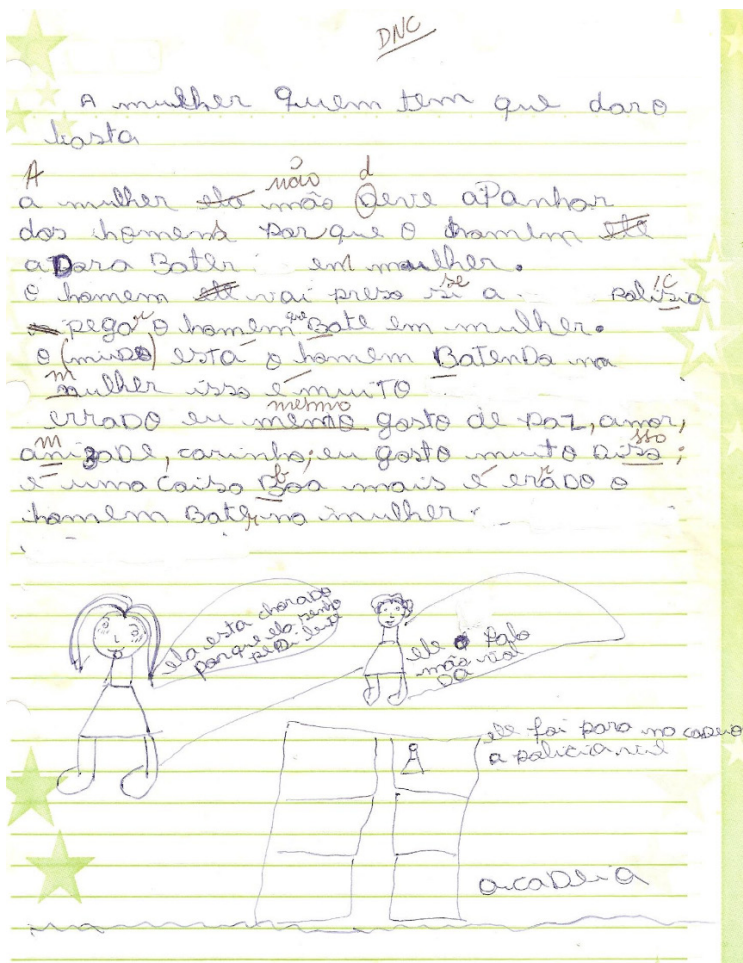 DNC
A mulher Quem tem que daro
basta
A não d
a mulher ela mão Deve aPanhar
dos homens Por que o homem ele
aDora Bater em mulher.
se ic
o homem ele vai preso si a Polisia
r que
pega o homem Bate em mulher.
o (muDo) está o homem BatenDo na
m
mulher isso é muiTO
mesmo
erraDO eu memo gosto de Paz, amor,
m sso
anizaDe, carinho; eu gosto muito Diso;
b r
é uma Coisa Boa mais é eraDO o
homem Bate, na mulher.
ela esta chorado
porque ela
ele
não
Da
ele foi para na caDeia
a Policia
a caDeia